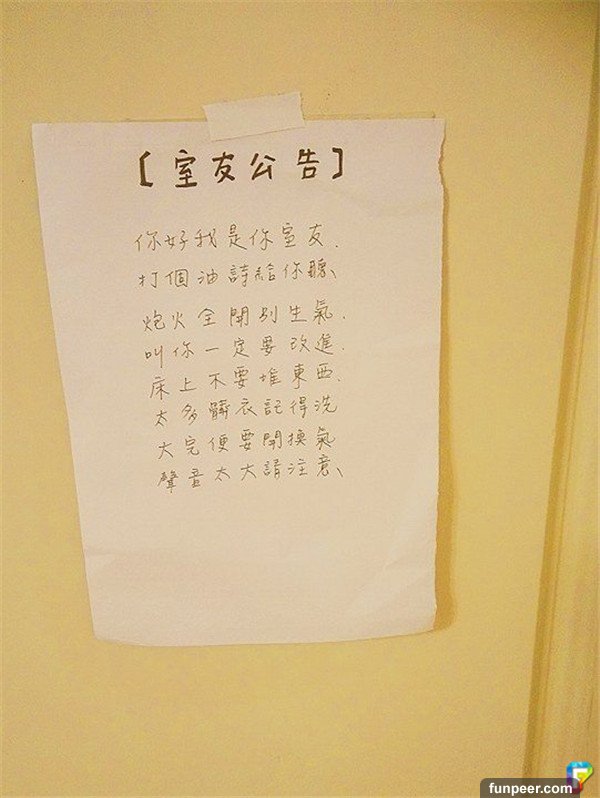 [室友公告]
你好我是你室友、
打個油詩給你聽、
炮火全開別生氣、
叫你一定要改進、
床上不要堆東西、
太多髒衣記得洗
大完便要開換氣
聲音太大請注意、
funpeer.com